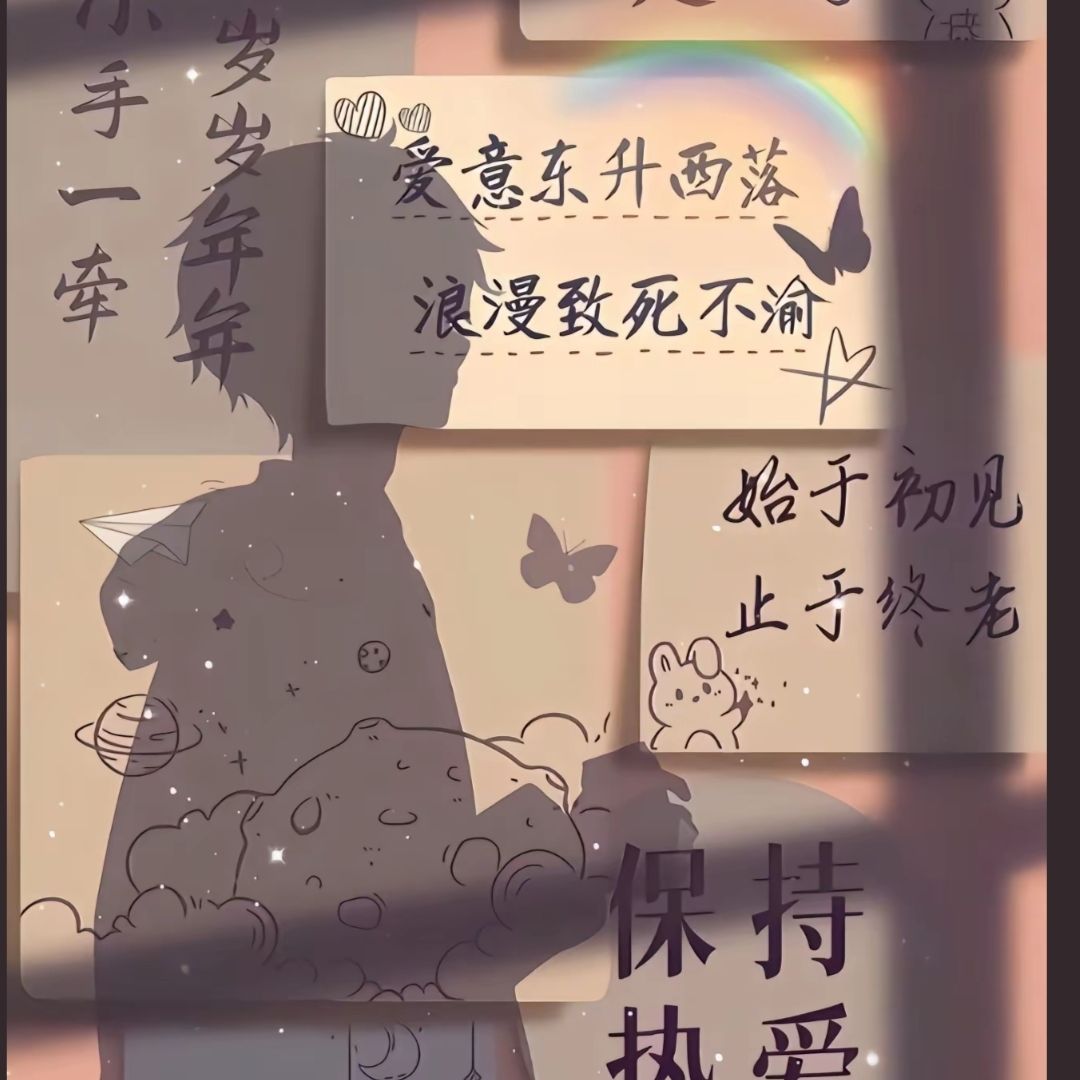 岁岁年年
小手一牵
爱意东升西落
浪漫致死不渝
始于初见
止于终老
保持
热爱